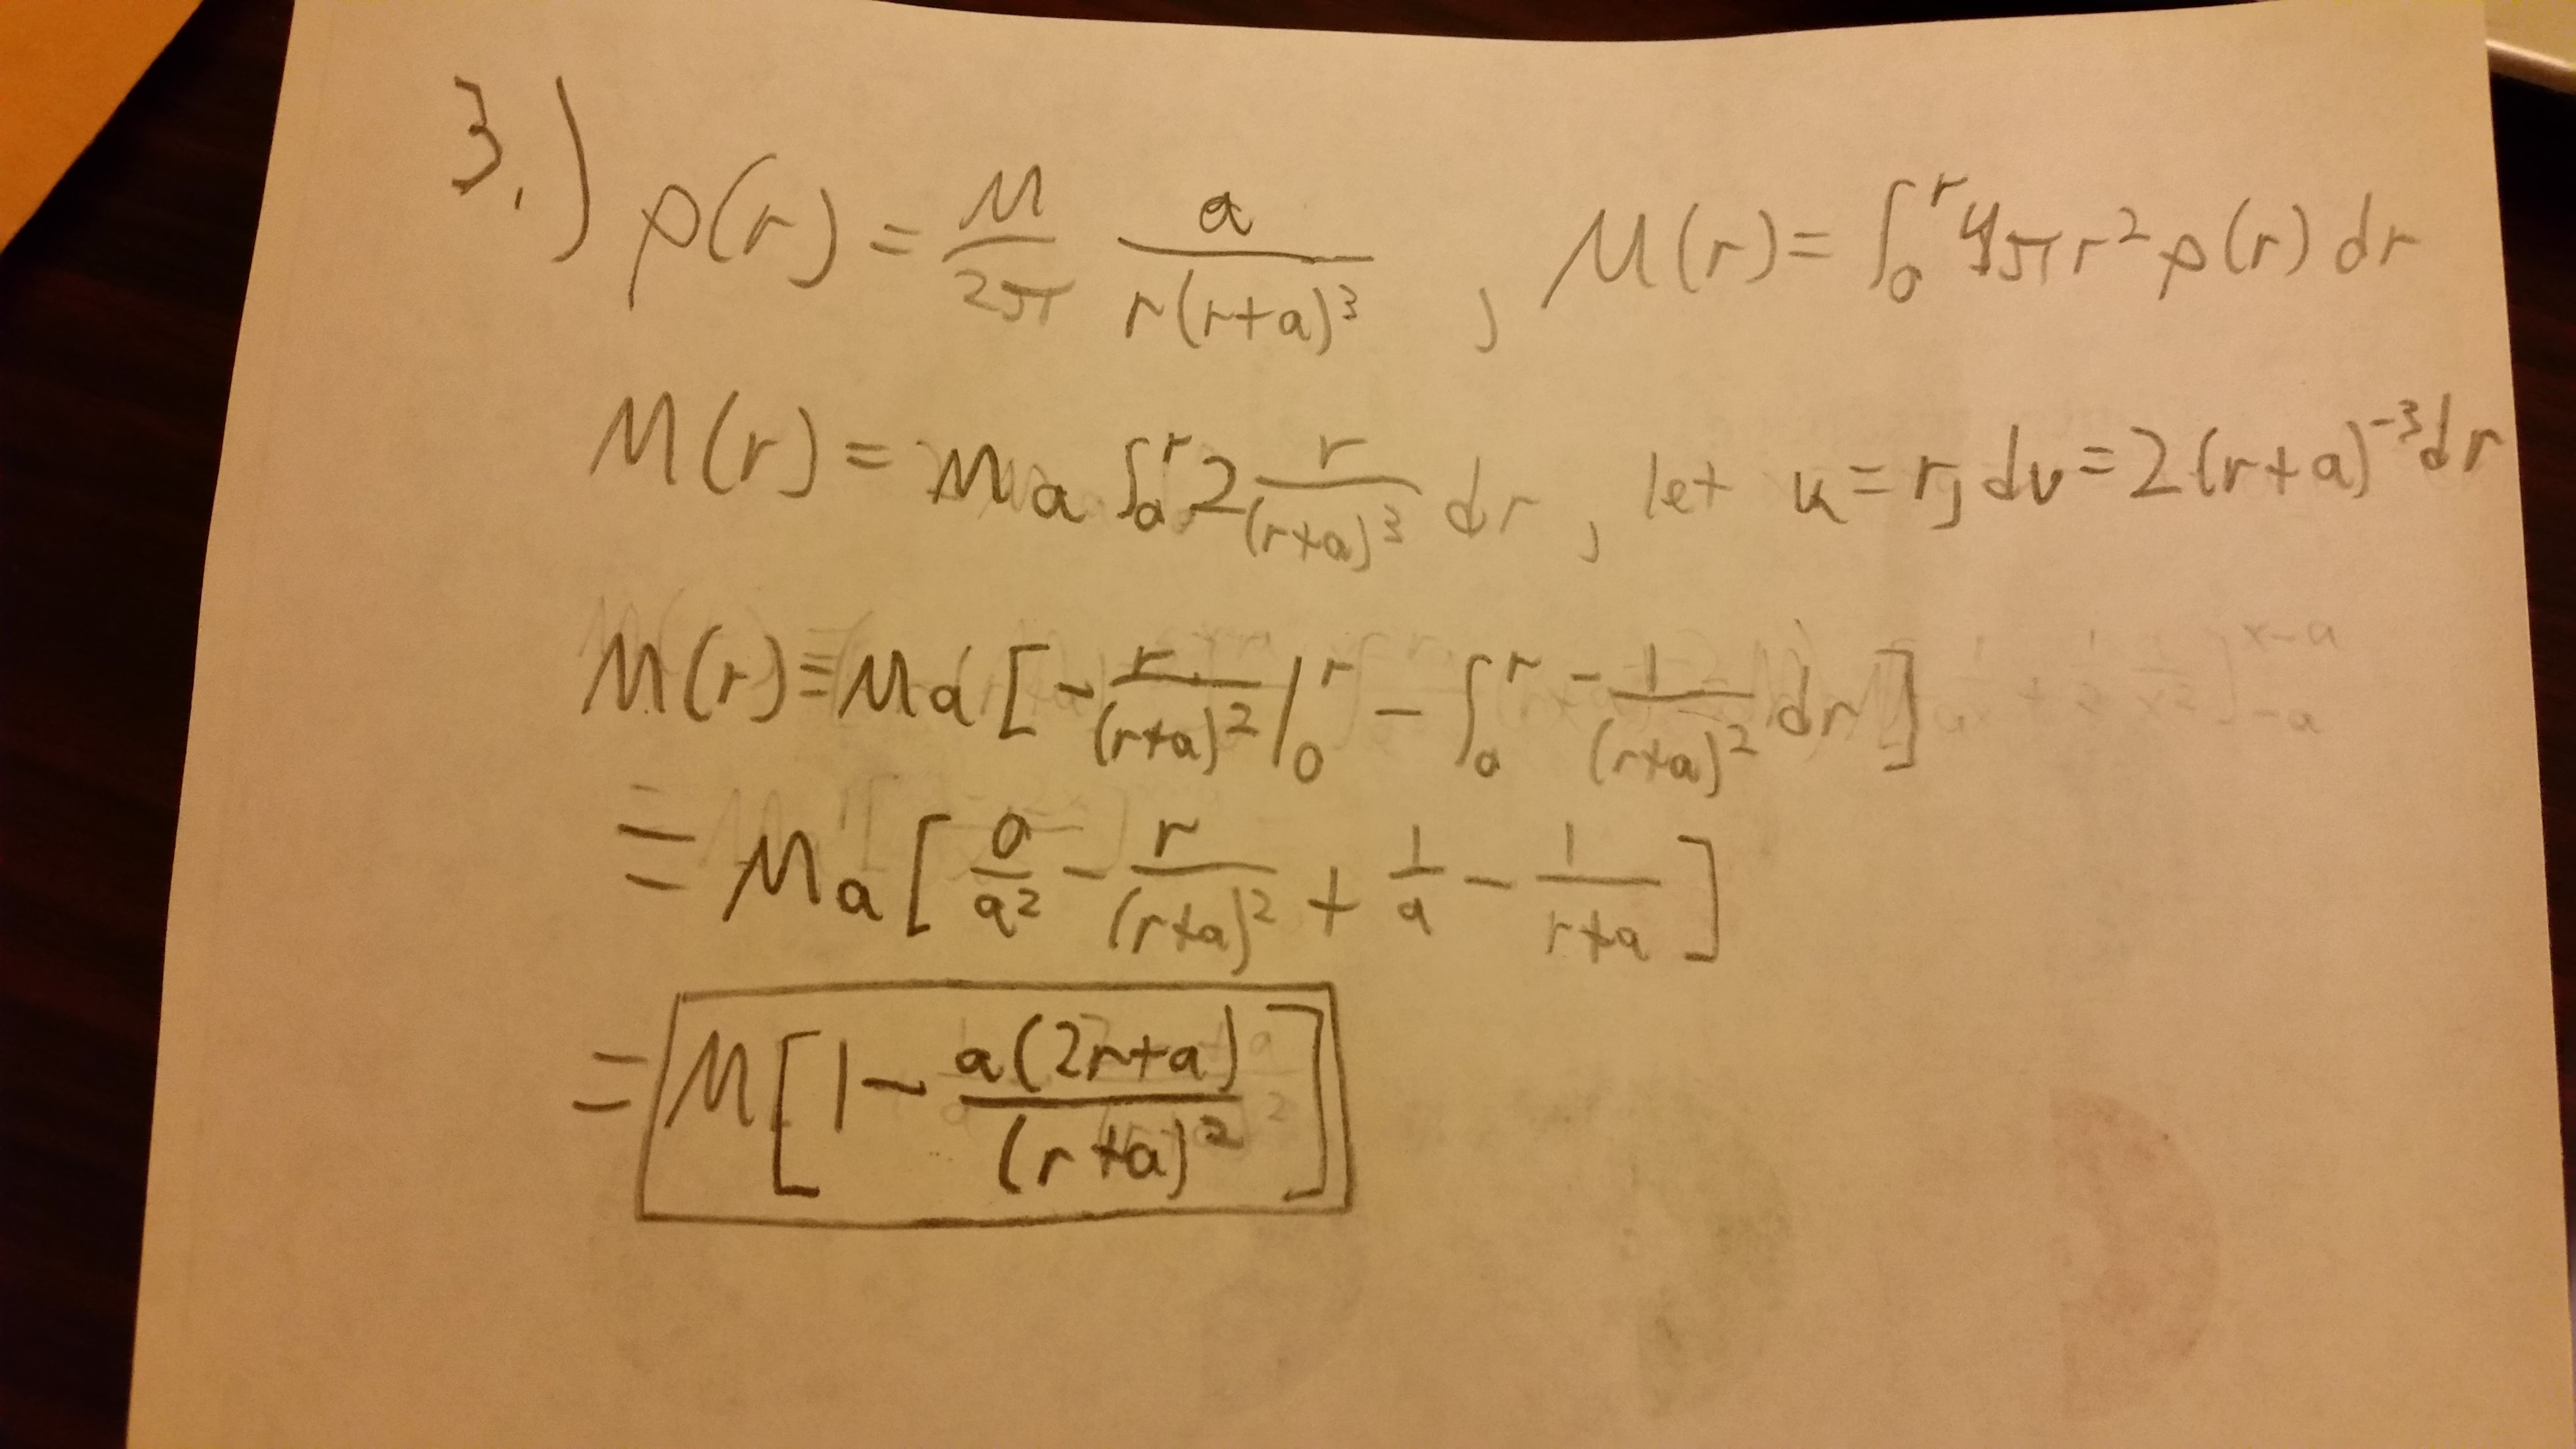 3.) ρ(r) = M/2π a/r(r+a)³ , M(r) = ∫₀ʳ 4πr² ρ(r) dr
M(r) = Ma ∫₀ʳ 2 r/(r+a)³ dr , let u = r, dv = 2(r+a)⁻³dr
M(r) = Ma [ - r/(r+a)² |₀ʳ - ∫₀ʳ - 1/(r+a)² dr ]
= Ma [ 0/a² - r/(r+a)² + 1/a - 1/r+a ]
= M [ 1 - a(2r+a)/(r+a)² ]